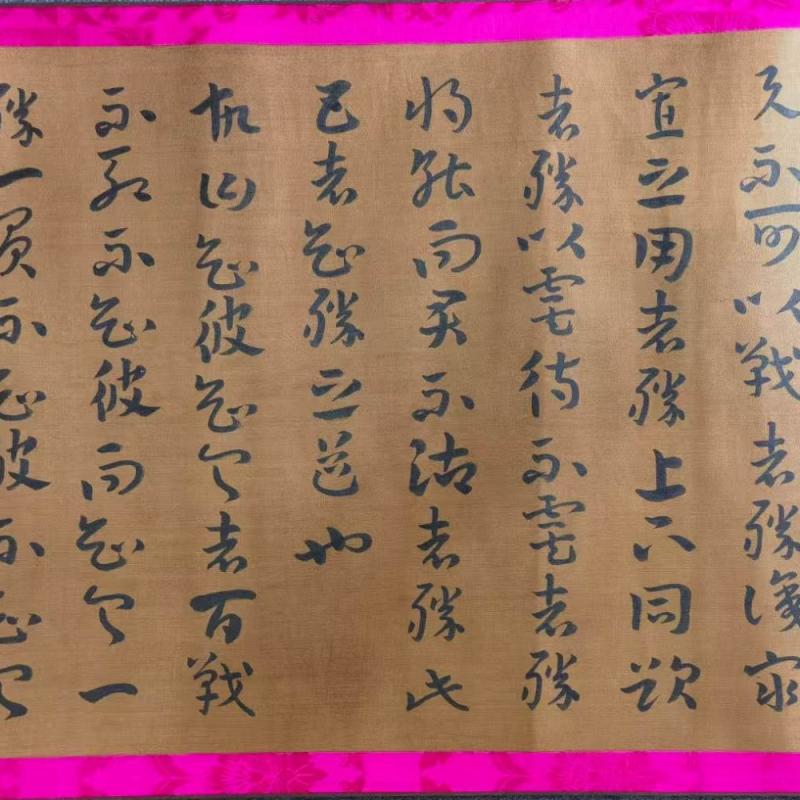 与不可以戰者勝識衆
寡之用者勝上下同欲
者勝以虞待不虞者勝
將能而君不御者勝此
五者知勝之道也
故曰知彼知己者百戰
不殆不知彼而知己一
勝一負不知彼不知己